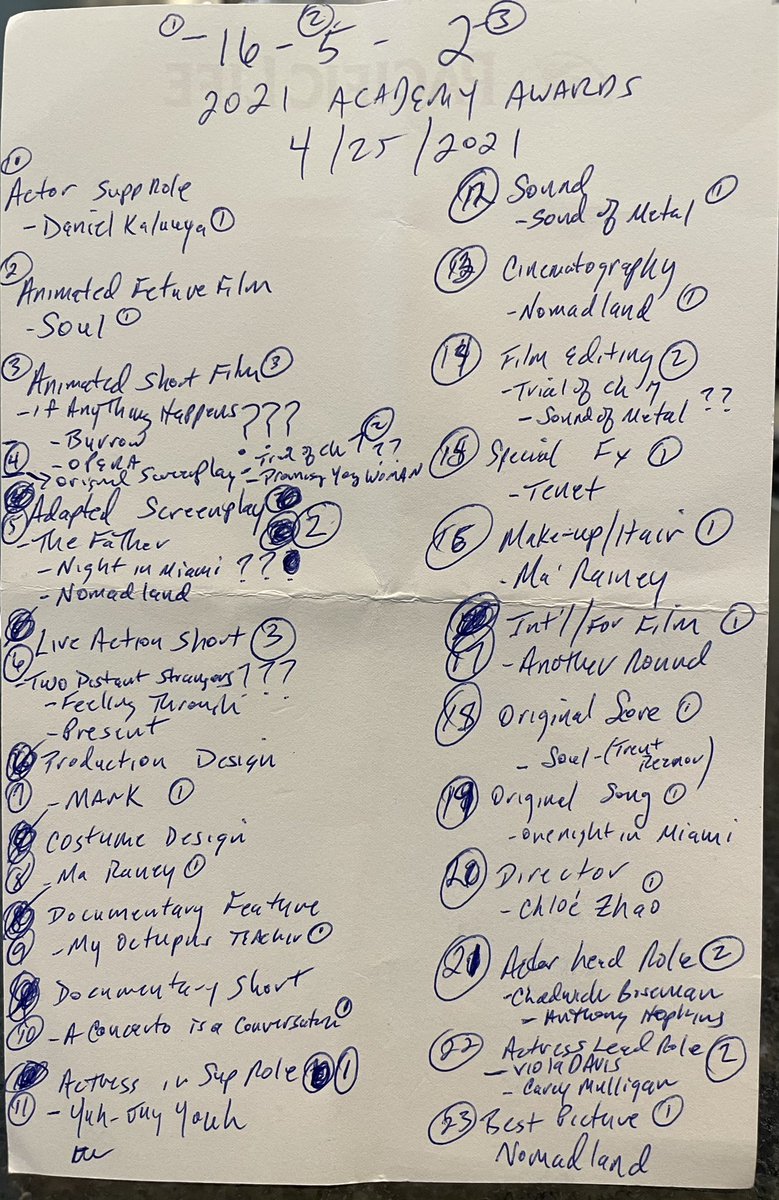 ① -16 - ② 5 - 2 ③
2021 ACADEMY AWARDS
4/25/2021
①
Actor Supp Role
- Daniel Kaluuya ①
②
Animated Feture Film
- Soul ①
③ Animated Short Film ③
- if Anything Happens ???
- Burrow
- OPERA
④ → Original Screenplay - Trial of Ch 7 ② ??
- Promising Yng WOMAN
⑤ Adapted Screenplay ②
- The Father
- Night in Miami ??
- Nomadland
⑥ Live Action Short ③
- Two Distant Strangers ???
- Feeling Through
- Present
⑦ Production Design
- MANK ①
⑧ Costume Design
- Ma Rainey ①
⑨ Documentary Feature
- My Octopus TEAcher ①
⑩ Documentary Short
- A Concerto is a Conversation ①
⑪ Actress in Sup Role ①
- Yuh-Jung Youn
⑫ Sound
- Sound of Metal ①
⑬ Cinematography
- Nomadland ①
⑭ Film Editing ②
- Trial of Ch 7
- Sound of Metal ??
⑮ Special Fx ①
- Tenet
⑯ Make-up/Hair ①
- Ma' Rainey
⑰ Int'l/For Film ①
- Another Round
⑱ Original Score ①
- Soul - (Trent
Reznor)
⑲ Original Song ①
- One night in Miami
⑳ Director
- Chloé Zhao ①
㉑ Actor Lead Role ②
- Chadwick Boseman
- Anthony Hopkins
㉒ Actress Lead Role ②
- Viola DAVIS
- Carey Mulligan
㉓ Best Picture ①
Nomadland